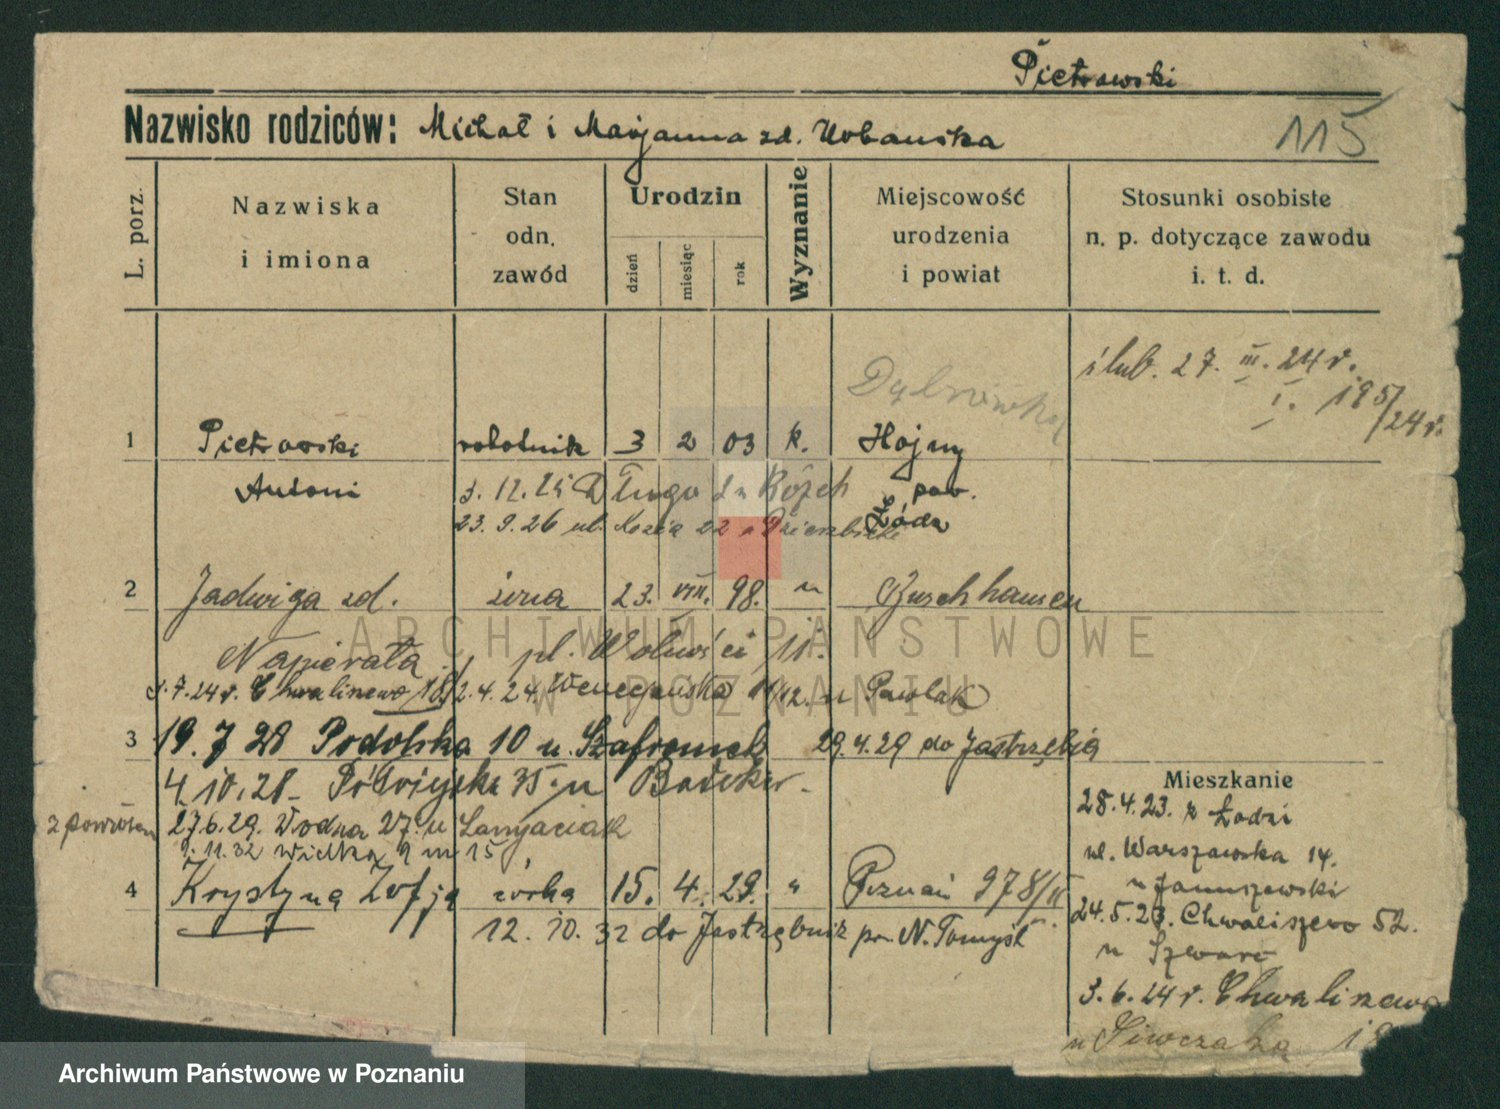 Pietrowski
Nazwisko rodziców: Michał i Marjanna zd. Urbańska
115
L. porz.
Nazwiska i imiona
Stan odn. zawód
Urodzin
dzień
miesiąc
rok
Wyznanie
Miejscowość urodzenia i powiat
Stosunki osobiste n. p. dotyczące zawodu i. t. d.
ślub. 27. III. 24 r.
I. 195/24 r.
Dąbrówka
1 Pietrowski robotnik 3 2 03 k. Hojny
Antoni 3. 12. 25 Długa u pow.
23. 9. 26 ul. Kozia 22 u Łódź
2 Jadwiga zd. żona 23. VIII. 98. " Buschhausen
Napierała pl. Wolności 11.
3.7.24 r. Chwaliszewo 18/ 2.4.24. Wenecjańska 11/12. u Pawlak
3 19. 7 28 Podolska 10 u. Szafranek 29.4.29 do Jastrzębia
4.10.28 - 35. u
z powrotem 27.6.29. Wodna 27. u
1. 11. 32 Wielka 9 m 15
4 Krystyna Zofja córka 15. 4. 29. " Poznań 978/II
12. 10. 32 do Jastrzębnik pow. N. Tomyśl
Mieszkanie
28. 4. 23. z Łodzi
ul. Warszawska 14.
u Januszewski
24. 5. 23. Chwaliszewo 52.
u Szwarc
3. 6. 24 r. Chwaliszewo
u Siwczaka 18
ARCHIWUM PAŃSTWOWE
W POZNANIU
Archiwum Państwowe w Poznaniu